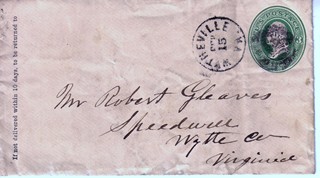 If not delivered within 10 days, to be returned to
WYTHEVILLE VA.
15
Mr Robert Gleaves
Speedwell
Wythe Co
Virginia